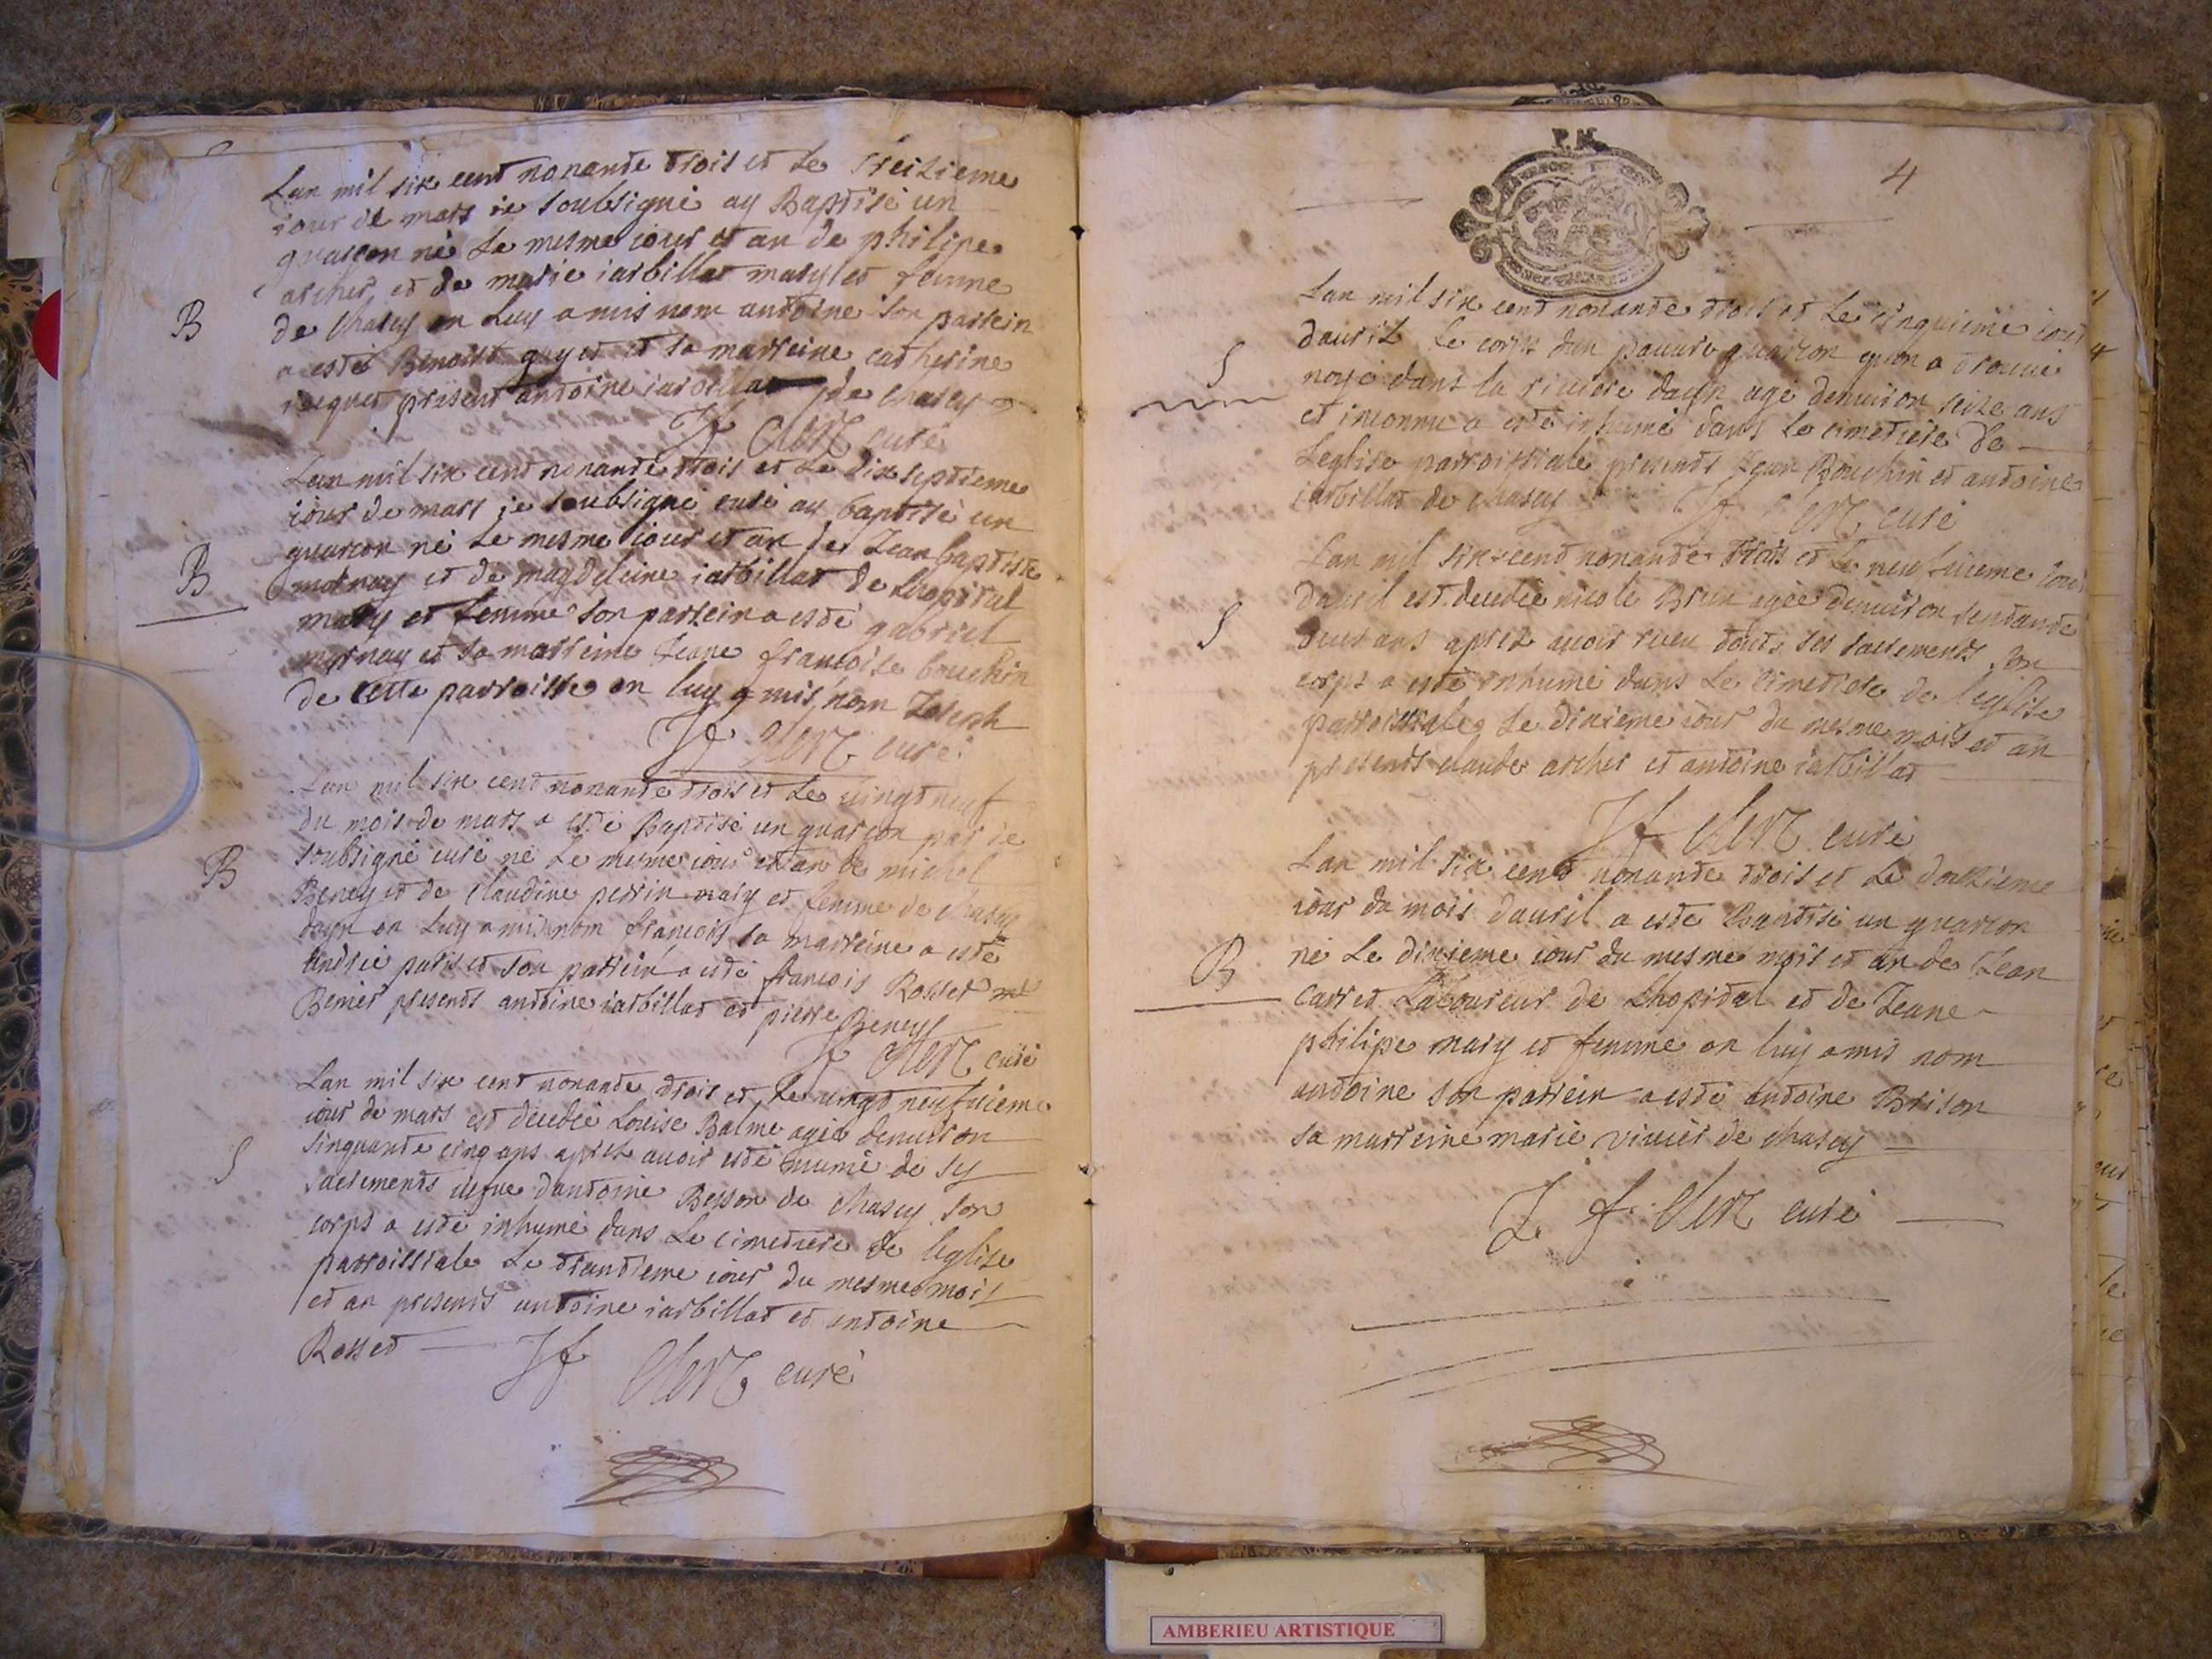 Lan mil six cent nonante trois et Le treizieme
iour de mars ie soubsigné ay Baptisé un
guarcon né Le mesme iour et an de philipe
archer et de marie iarbillat mary et femme
B
de chasey on Luy a mis nom antoine son parrein
a esté Benoist guyet et sa marreine catherine
present antoine iarbillat de chasey
J f Clerc curé
Lan mil six cent nonante trois et Le dix septieme
iour de mars je soubsigné curé ay baptisé un
guarcon né Le mesme iour et an de Jean baptiste
B
mornay et de magdeleine iarbillat de Lhopital
mary et femme son parrein a esté gabriel
mornay et sa marreine Jeane francoise bouchin
de cette parroisse on luy a mis nom Joseph
J f Clerc curé
Lan mil six cent nonante trois et Le uingt neuf
du mois de mars a esté Baptisé un guarcon par ie
soubsigné curé né Le mesme iour et an de michel
B
Beney et de Claudine perrin mary et femme de chasey
dayn on Luy a mis nom francois sa marreine a esté
Andrée paris et son parrein a esté francois Rosset
presents antoine iarbillat et pierre Beney
J f Clerc curé
Lan mil six cent nonante trois et Le uingt neufuieme
iour de mars est decedée Louise Balme agée denuiron
S
sinquante cinq ans aprez auoir esté munie de sy
sacrements uefue dantoine Besson de chasey son
corps a esté inhumé dans Le cimetiere de leglise
parroissiale Le trantieme iour du mesme mois
et an presents antoine iarbillat et antoine
Rosset J f Clerc curé
P. M.
4
Lan mil six cent nonante trois et Le cinquieme iour
dauril Le corps dun pauure guarcon quon a trouué
S
noyé dans la riuiere dayn agé denuiron seize ans
et inconnu a esté inhumé dans Le cimetiere de
Leglise parroissiale presents Jean Bouchin et antoine
iarbillat de chasey
J f Clerc curé
Lan mil six cent nonante trois et Le neufuieme iour
dauril est decedée nicole Brun agée denuiron septante
S
deux ans aprez auoir receu touts ses sacrements son
corps a esté inhumé dans Le cimetiere de leglise
parroissiale Le dixieme iour du mesme mois et an
presents claude archer et antoine iarbillat
J f Clerc curé
Lan mil six cent nonante trois et Le douzieme
iour du mois dauril a esté Baptisé un guarcon
né Le dixieme iour du mesme mois et an de Jean
B
Carret Laboureur de Lhopital et de Jeane
philipe mary et femme on luy a mis nom
antoine son parrein a esté antoine Brison
sa marreine marie viuier de chasey
J f Clerc curé
AMBERIEU ARTISTIQUE